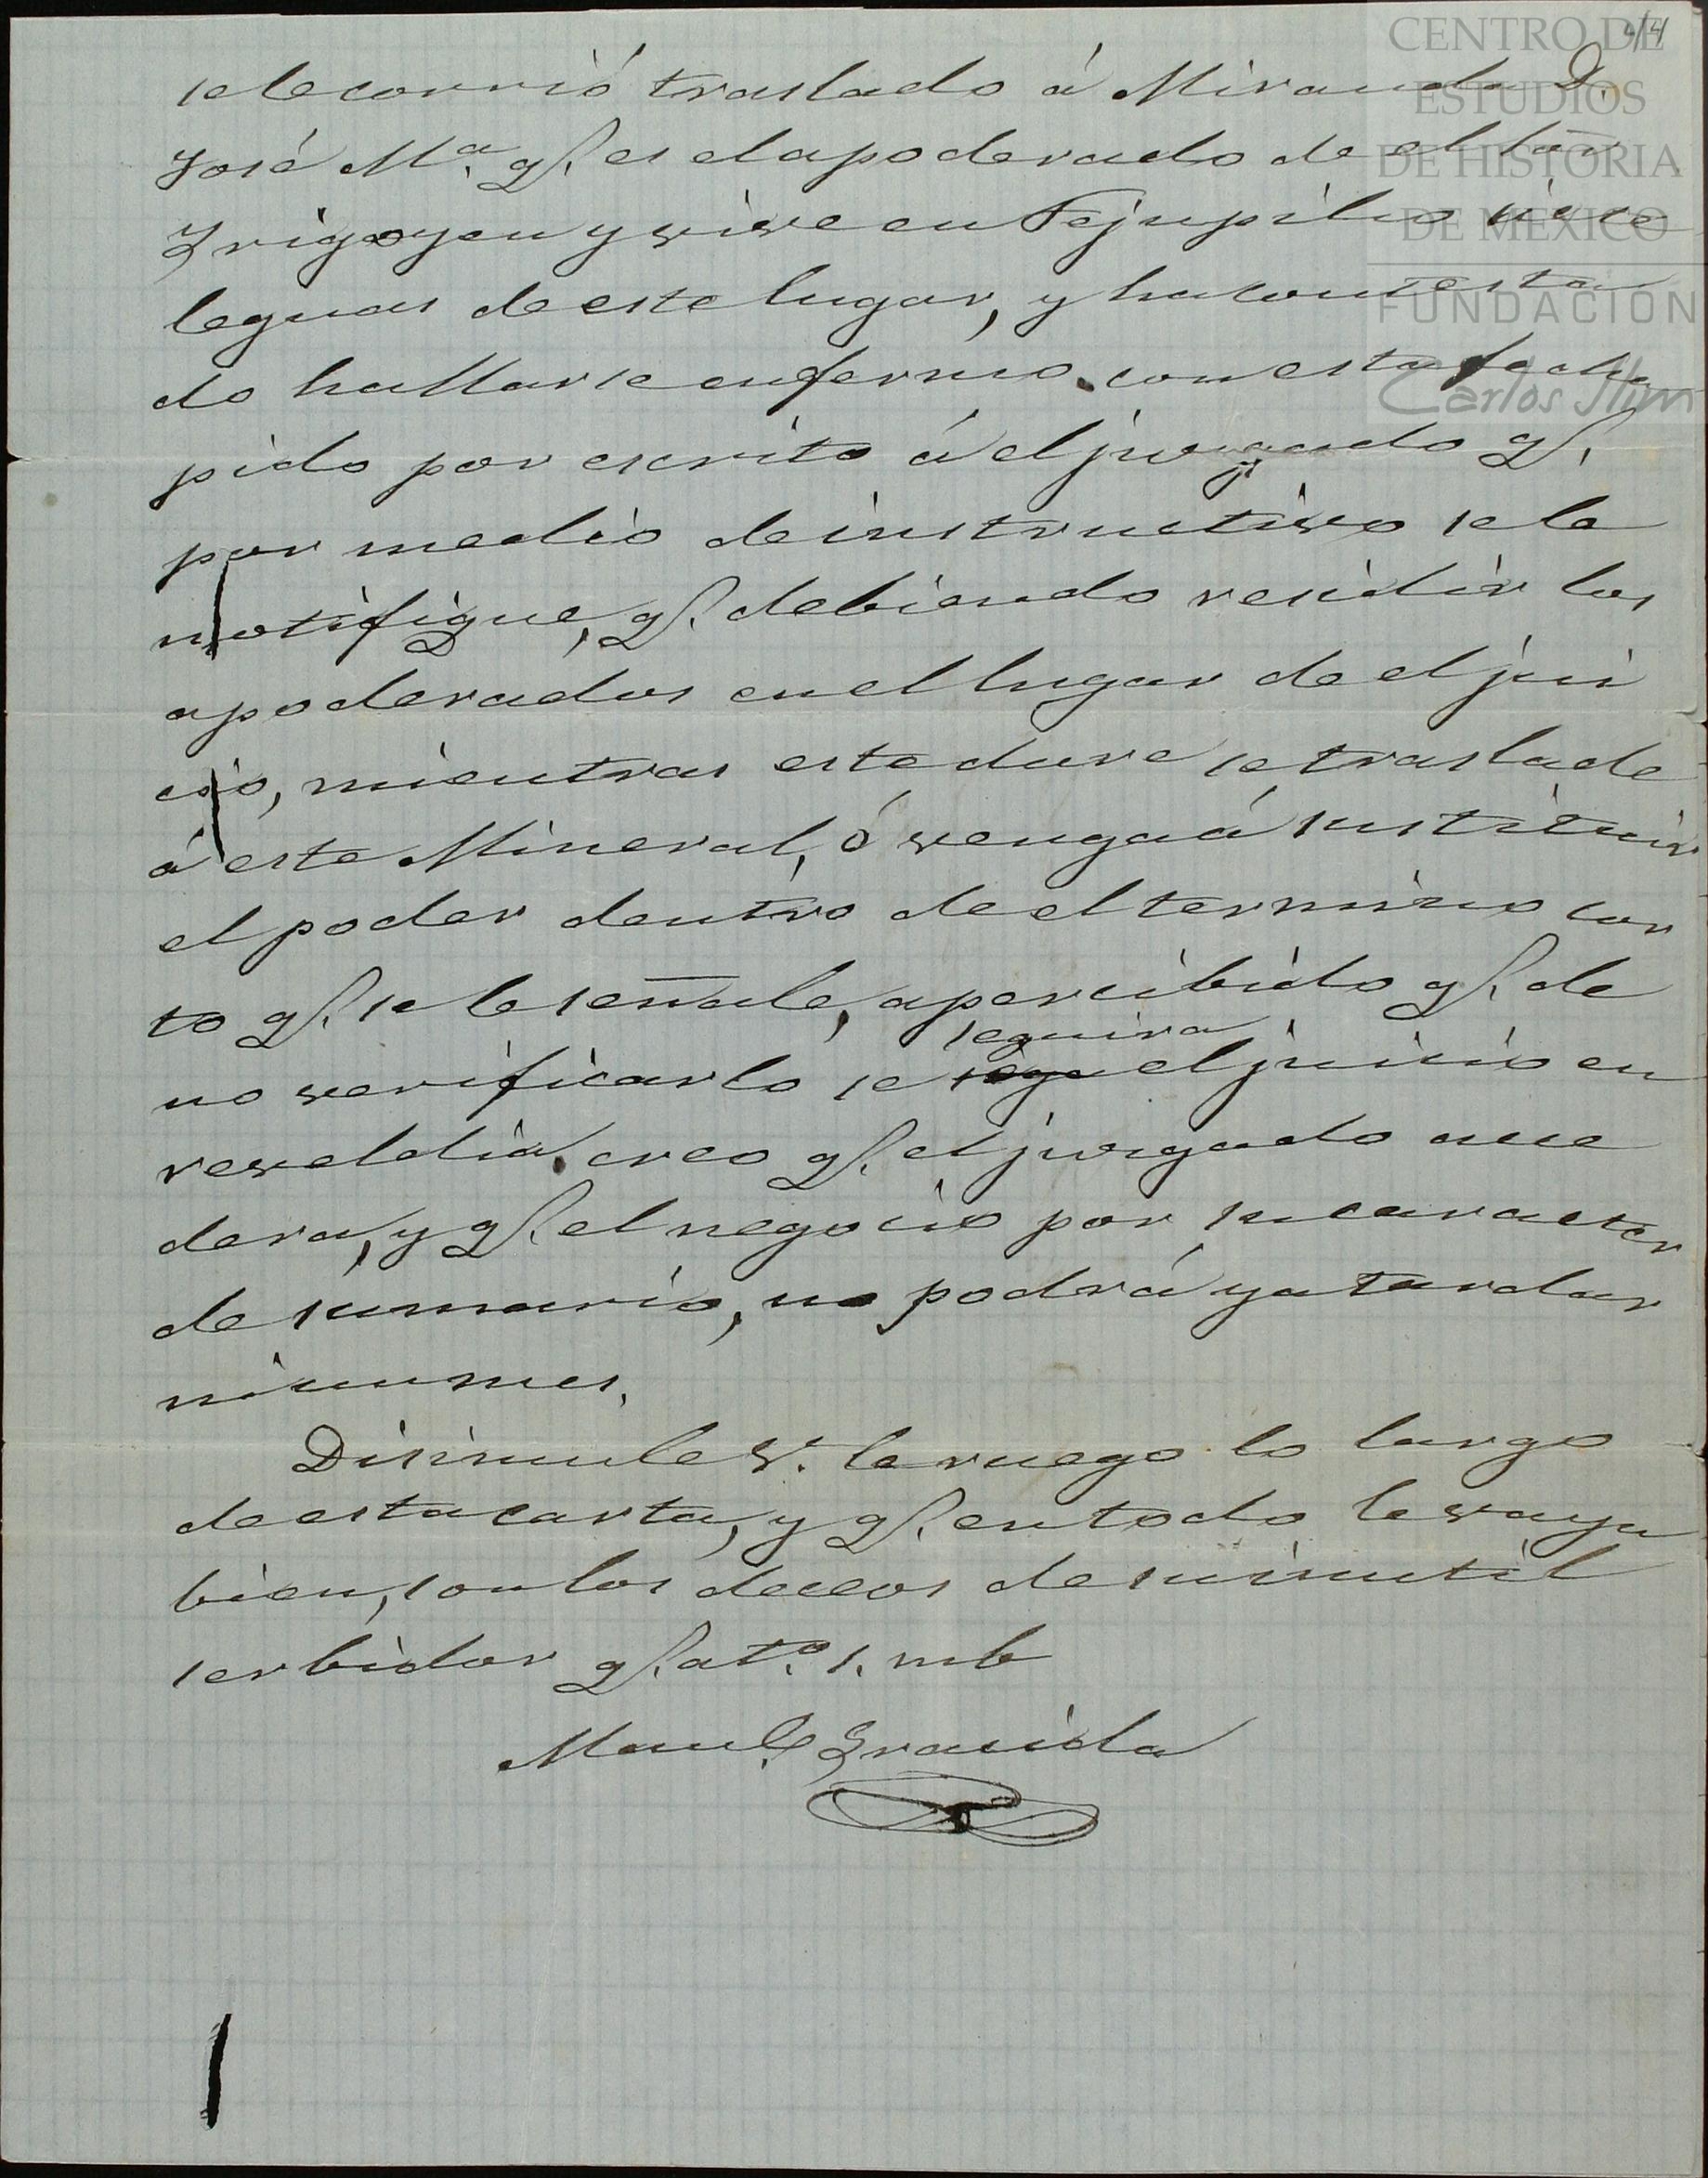 4/4
CENTRO DE
ESTUDIOS
DE HISTORIA
DE MÉXICO
FUNDACIÓN
Carlos Slim
se le corrió traslado á Miranda D.
José Ma. q. es el apoderado de el Sor
Yrigoyen y vive en Tejupilco
leguas de este lugar, y ha contesta
do hallarse enfermo. con esta fecha
pido por escrito á el juzgado q.
por medio de instructivo se le
notifique, q. debiendo residir los
apoderados en el lugar de el jui
cio, mientras este dure se traslade
á este Mineral, ó venga á sustituir
el poder dentro de el termino cor
to q. se le señale, apercibido q. de
seguira
no verificarlo se sige el juicio en
reveldia. creo q. el juzgado acce
dera, y q. el negocio por su caracter
de sumario, no podrá ya tardar
ni un mes.
Disimule V. le ruego lo largo
de esta carta, y q. en todo le vaya
bien, son los deceos de su inutil
serbidor q. ato. s. m b
Manl. Gravida